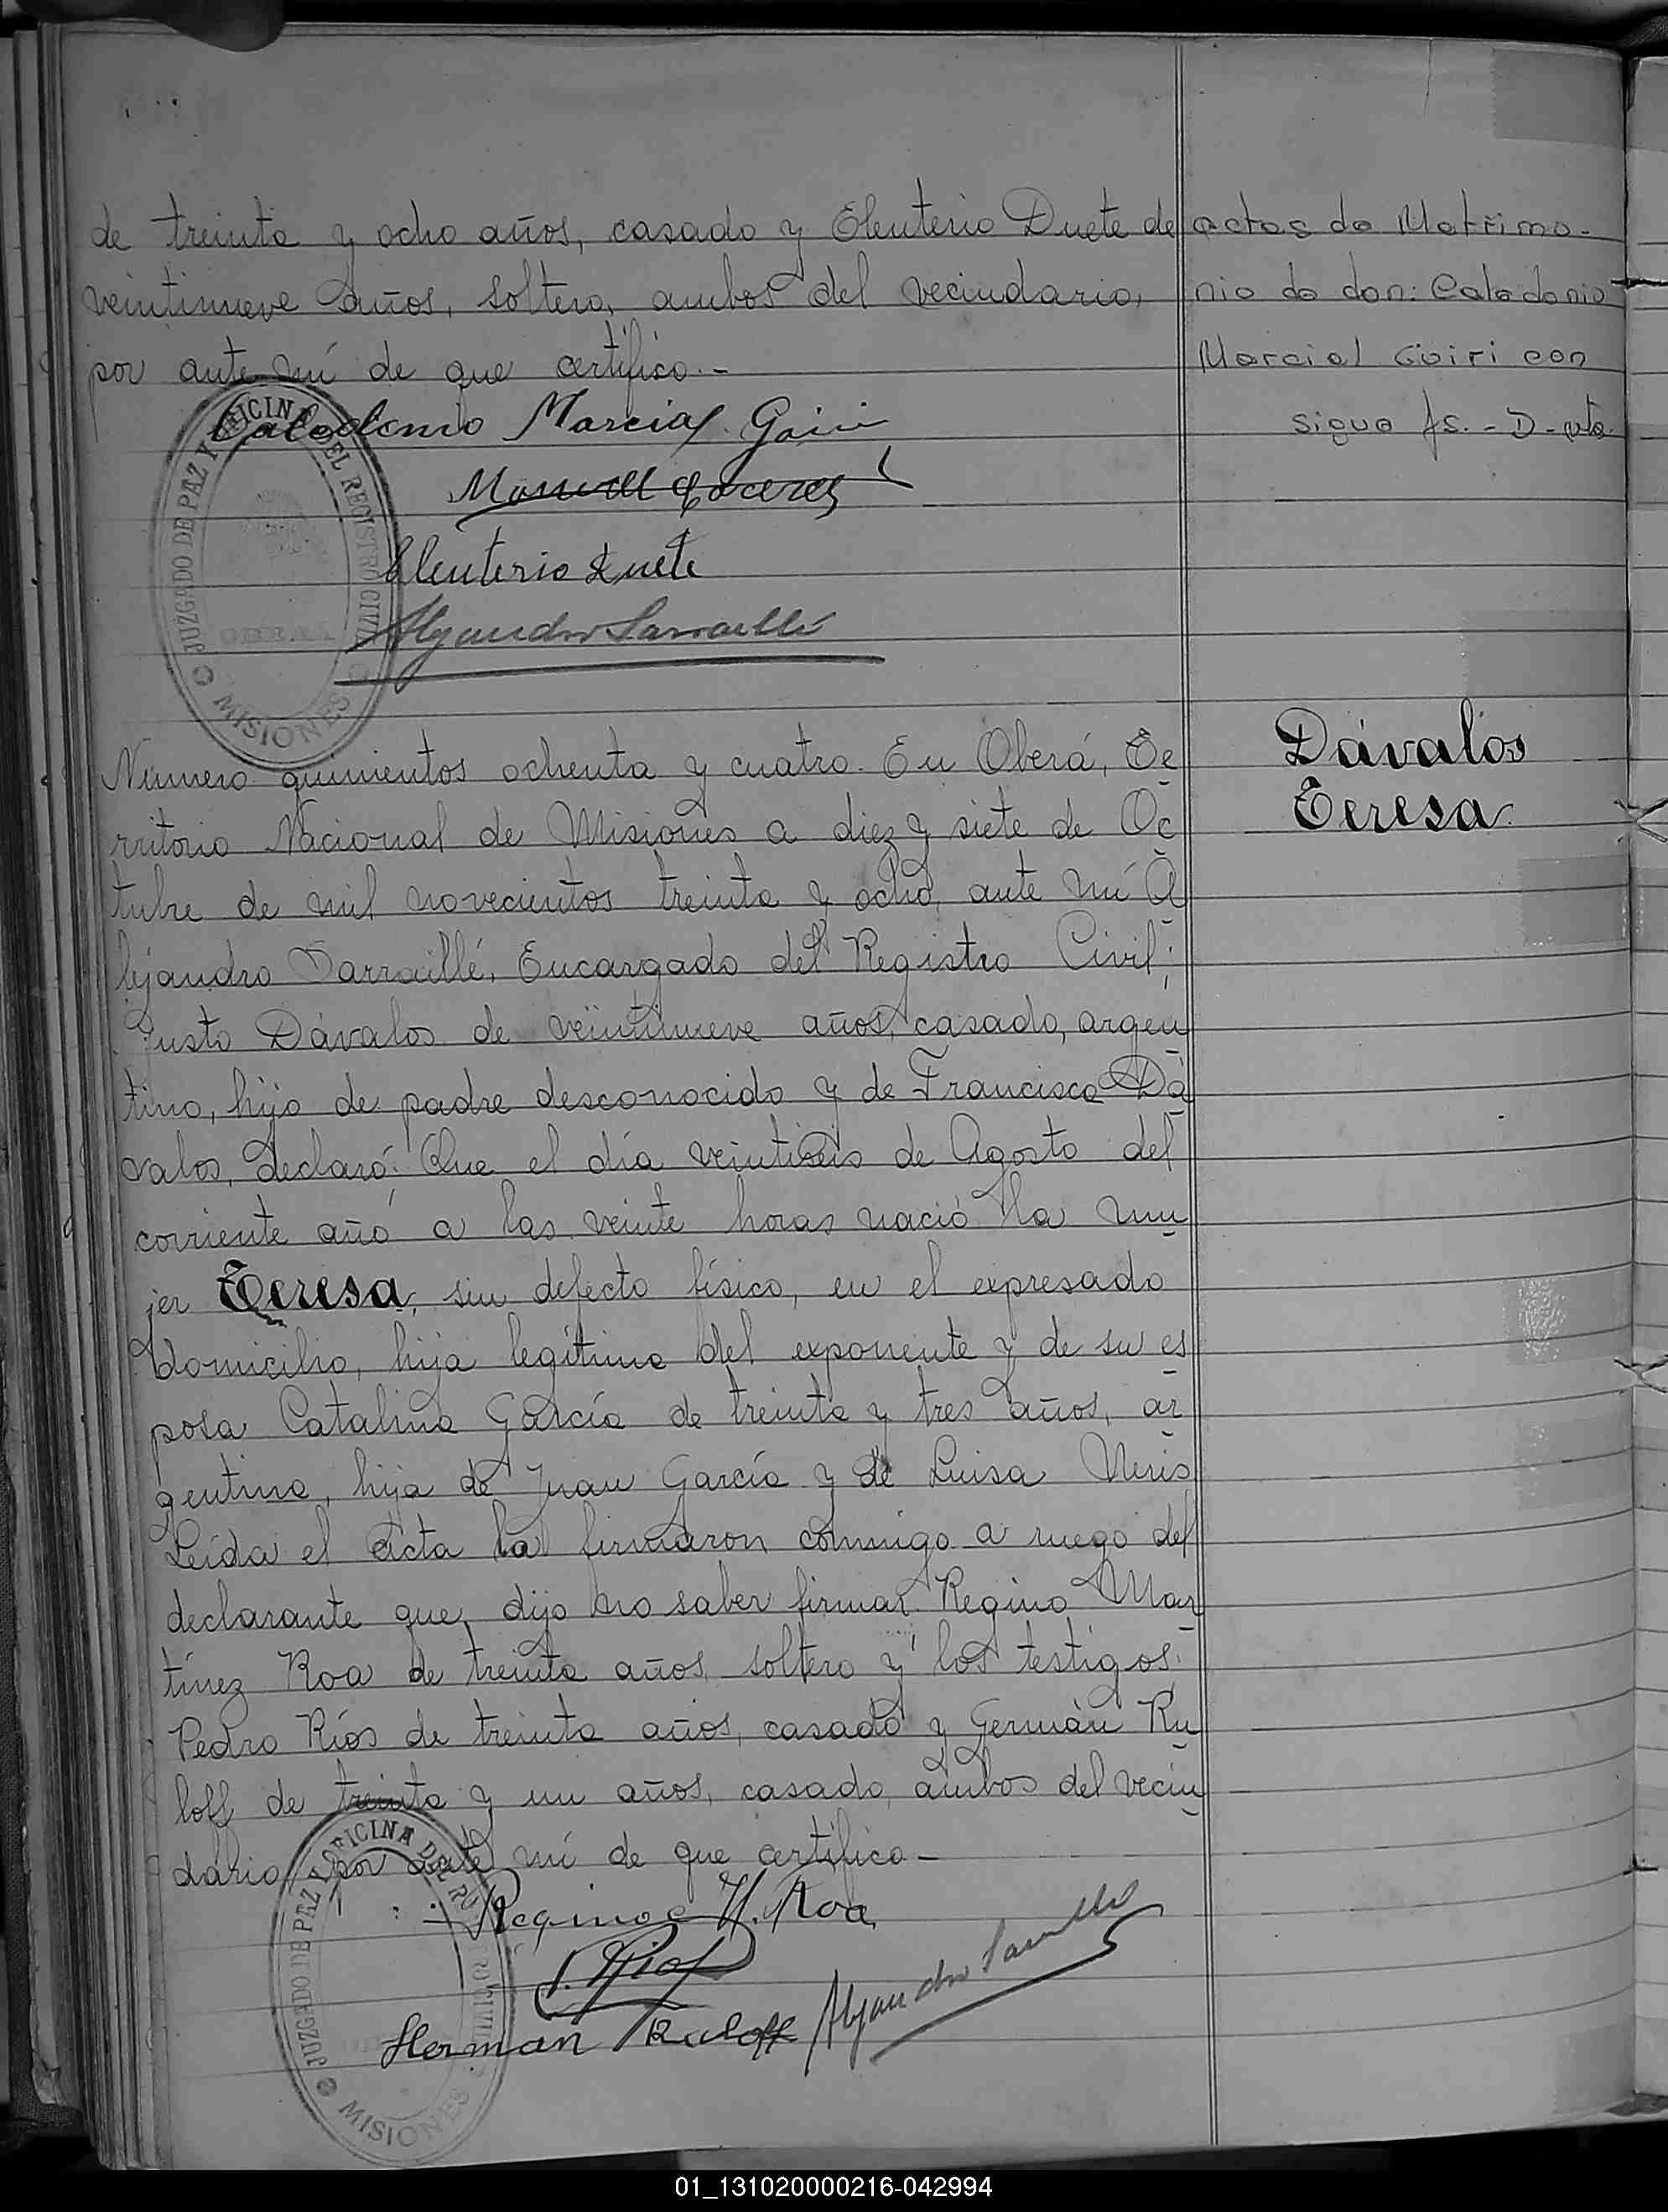 de treinta y ocho años, casado y Eleuterio Duete de
veintinueve años, soltero, ambos del vecindario,
por ante mí de que certifico.-
actas de Matrimo-
nio de don: Celedonio
Marcial Giiri con
sigue fs. - D -
Celedonio Marcial
Manuel Caceres
Eleuterio Duete
Alejandro Sarraillé
JUZGADO DE PAZ Y OFICINA DEL REGISTRO CIVIL
OBERÁ
MISIONES
Dávalos
Teresa.
Número quinientos ochenta y cuatro. En Oberá, Te
rritorio Nacional de Misiones a diez y siete de Oc
tubre de mil novecientos treinta y ocho, ante mí A
lejandro Sarraillé, Encargado del Registro Civil;
Justo Dávalos de veintinueve años, casado, argen
tino, hijo de padre desconocido y de Francisca Dá
valos, declaró: Que el día veintiseis de Agosto del
corriente año a las veinte horas nació la mu
jer Teresa, sin defecto físico, en el expresado
domicilio, hija legítima del exponente y de su es
posa Catalina García de treinta y tres años, ar
gentina, hija de Juan García y de Luisa Neris
Leída el acta la firmaron conmigo a ruego del
declarante que dijo no saber firmar Regino Mar
tínez Roa de treinta años soltero y los testigos:
Pedro Ríos de treinta años, casado y Germán Ru
loff de treinta y un años, casado, ambos del vecin
dario, por ante mí de que certifico -
Regino M. Roa
P. Rios
Herman Ruloff
Alejandro Sarraillé
JUZGADO DE PAZ Y OFICINA DEL REGISTRO CIVIL
MISIONES
01_131020000216-042994